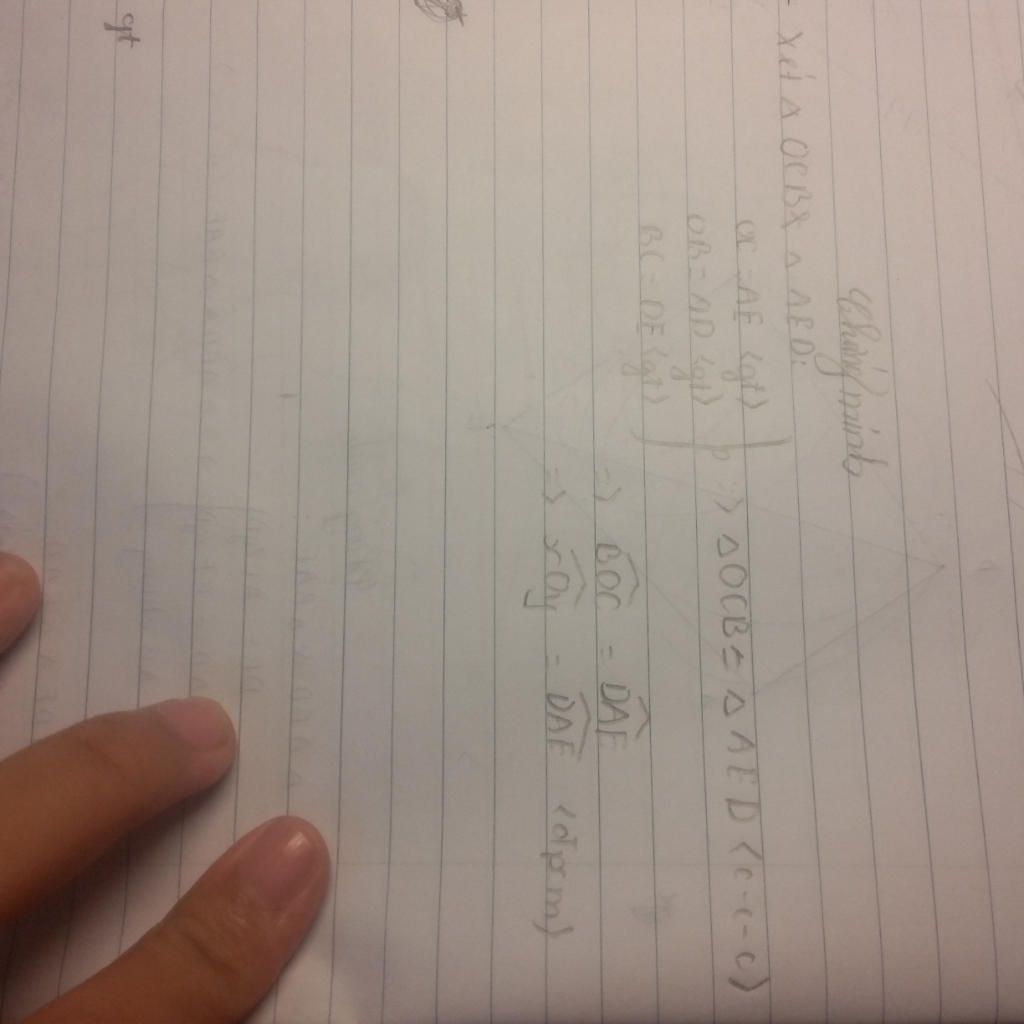 Chứng minh
- Xét Δ OCB & Δ AED:
OC = AE (gt)
OB = AD (gt)
BC = DE (gt)
=> Δ OCB = Δ AED (c-c-c)
=> BOC = DAE
=> xOy = DAE (đpcm)
gt